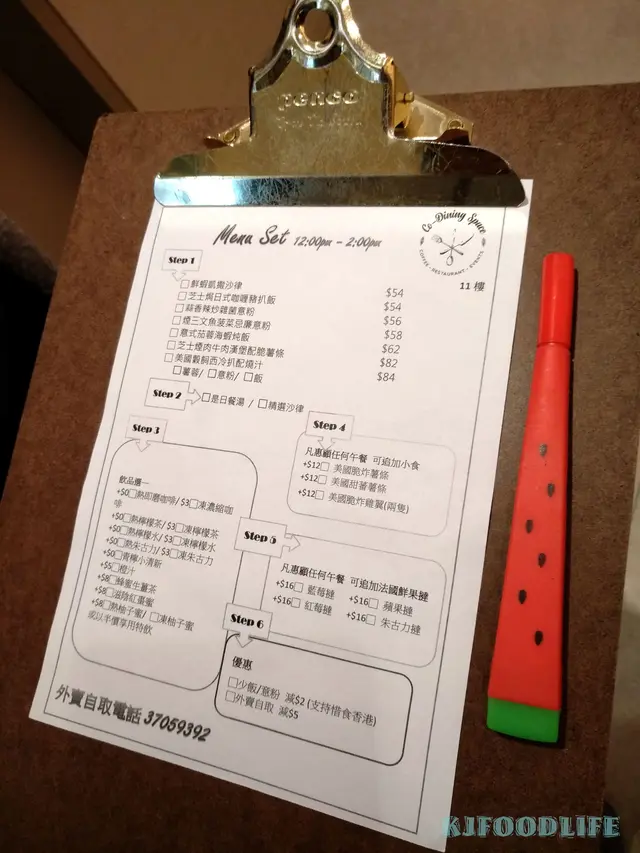 penco
Menu Set 12:00pm - 2:00pm
Co-Dining Space
COFFEE · RESTAURANT · EVENTS
11 樓
Step 1
□鮮蝦凱撒沙律 $54
□芝士焗日式咖喱豬扒飯 $54
□蒜香辣炒雜菌意粉 $56
□煙三文魚菠菜忌廉意粉 $58
□意式茄蓉海蝦炖飯 $62
□芝士煙肉牛肉漢堡配脆薯條 $82
□美國穀飼西冷扒配燒汁 $84
□薯蓉/ □意粉/ □飯
Step 2
□是日餐湯 / □精選沙律
Step 3
飲品選一
+$0□熱即磨咖啡/ $3□凍濃縮咖
啡
+$0□熱檸檬茶/ $3□凍檸檬茶
+$0□熱檸檬水/ $3□凍檸檬水
+$0□熱朱古力/ $3□凍朱古力
+$0□青檸小清新
+$5□橙汁
+$8□蜂蜜生薑茶
+$8□滋陰紅棗蜜
+$8□熱柚子蜜/ □凍柚子蜜
或以半價享用特飲
Step 4
凡惠顧任何午餐 可追加小食
+$12□ 美國脆炸薯條
+$12□ 美國甜蕃薯條
+$12□ 美國脆炸雞翼(兩隻)
Step 5
凡惠顧任何午餐 可追加法國鮮果撻
+$16□ 藍莓撻 +$16□ 蘋果撻
+$16□ 紅莓撻 +$16□ 朱古力撻
Step 6
優惠
□少飯/意粉 減$2 (支持惜食香港)
□外賣自取 減$5
外賣自取電話 37059392
KJFOODLIFE